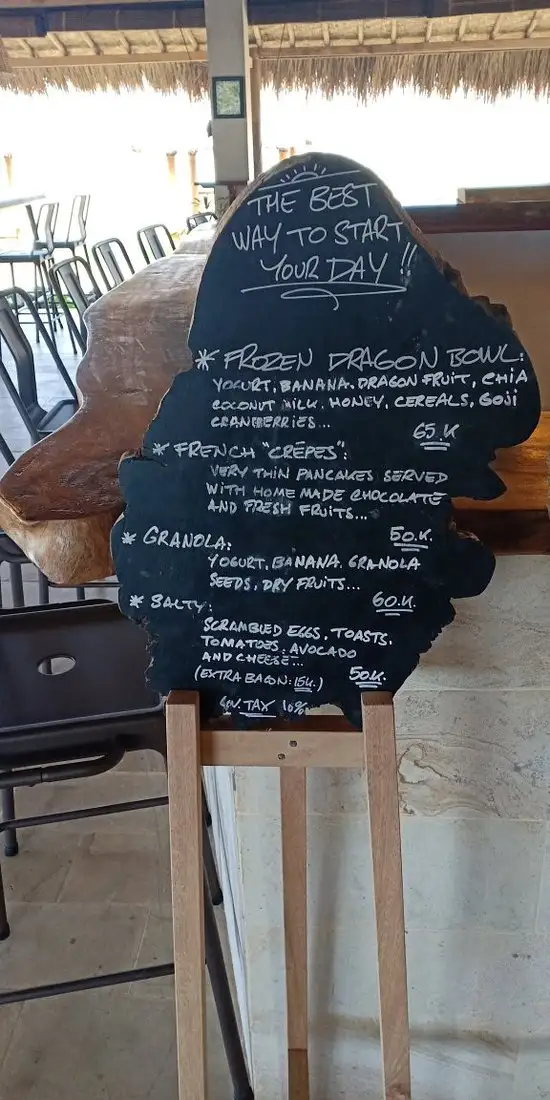 THE BEST
WAY TO START
YOUR DAY !!
* FROZEN DRAGON BOWL:
YOGURT, BANANA. DRAGON FRUIT, CHIA
COCONUT MILK. HONEY, CEREALS, GOJI
CRANBERRIES...
65.K
* FRENCH "CRÊPES":
VERY THIN PANCAKES SERVED
WITH HOME MADE CHOCOLATE
AND FRESH FRUITS...
50.K.
* GRANOLA:
YOGURT, BANANA. GRANOLA
SEEDS, DRY FRUITS...
60.K.
* SALTY:
SCRAMBLED EGGS, TOASTS.
TOMATOES. AVOCADO
AND CHEESE...
(EXTRA BACON: 15K.)
50K.
GOV. TAX 10%